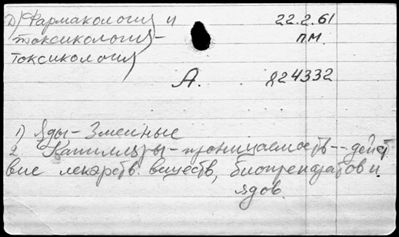 Д) Фармакология и
токсикология-
токсикология
22.2.61
пм.
А.
824332
1) Яды - Змеиные
2 Капилляры - проницаемость -- дейст
вие лекарств. веществ, биопрепаратов и
ядов.